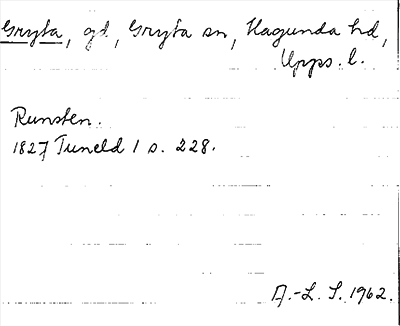 Gryta, gd, Gryta sn, Hagunda hd,
Upps. l.
Runsten.
1827 Tuneld 1 s. 228.
A.-L. S. 1962.